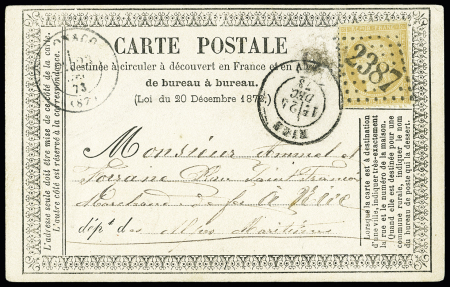 MONACO
73
(87)
CARTE POSTALE
destinée à circuler à découvert en France et en
de bureau à bureau.
(Loi du 20 Décembre 1872)
2387
NICE
DEC
73
L'adresse seule doit être mise de ce côté de la carte.
L'autre côté est réservé à la correspondance.
Monsieur
Rue Saint François
de
à Nice
dépt des Alpes Maritimes
Lorsque la carte est à destination
d'une ville, indiquer très-exactement
la rue et le numéro de la maison.
Quand elle est destinée pour une
commune rurale, indiquer le nom
du bureau de poste qui la dessert.